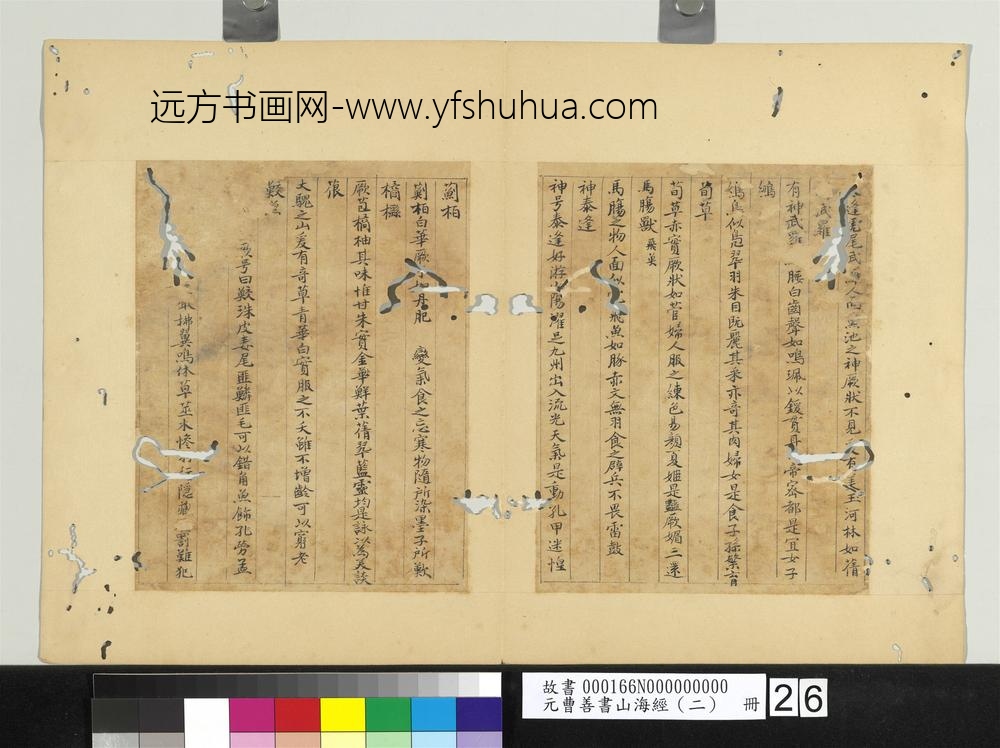 远方书画网-www.yfshuhua.com
逢尾武 池之神厥狀不見 有 玉河林如蒨
武羅
有神武羅 腰白齒聲如鳴珮以鍰貫耳帝密都是冝女子
鴢
鴢鳥似鳧翠羽朱目既麗其采亦奇其肉婦女是食子孫繁育
荀草
荀草赤實厥狀如菅婦人服之練色易顏夏姬是豔厥媚三遷
馬膓獸 飛魚
馬膓之物人面似 飛魚如豚赤文無羽食之辟兵不畏雷鼓
神泰逢
神号泰逢好游山陽濯足九州出入流光天氣是動孔甲迷惶
薊柏
薊柏白華厥 如丹肥 變氣食之忘寒物隨所染墨子所歎
橘櫾
厥苞橘柚其味惟甘朱實金華鮮葉蒨翠藍靈均是詠以為美談
大騩之山爰有奇草青華白實服之不夭雖不增齡可以窮老
鮫魚
号曰鮫珠皮毒尾匪鱗匪毛可以錯角魚飾孔勞孟
拂翼鳴休草莖木慘 行隱藏 罰難犯
故書 000166N000000000
元曹善書山海經（二） 冊
26